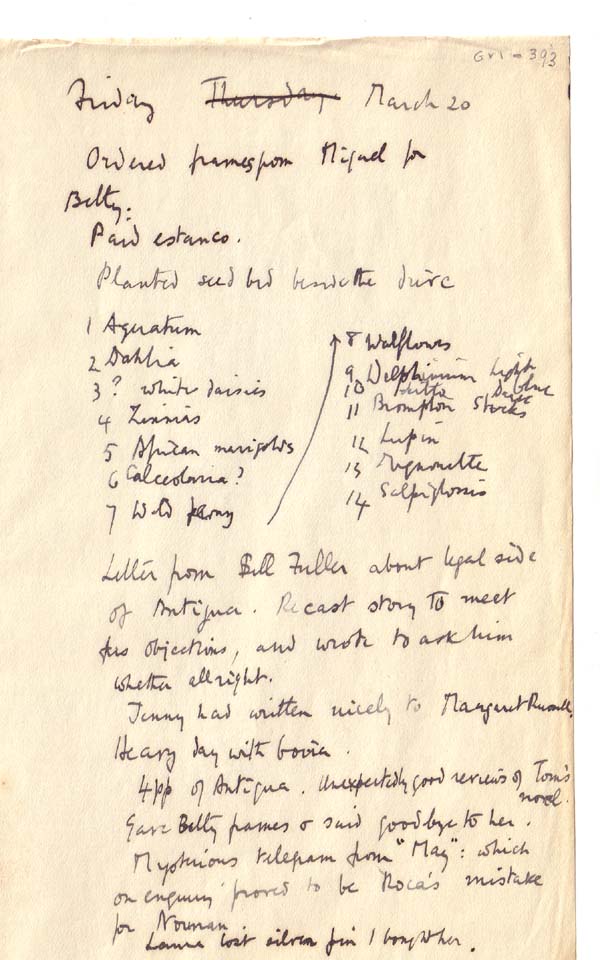 GVI - 393
Friday Thursday March 20
Ordered frames from Miguel for
Betty:
Paid estanco.
Planted seed bed beside the drive
1 Ageratum
2 Dahlia
3 ? white daisies
4 Zinnias
5 African marigolds
6 Calceolaria?
7 Wild peony
8 Wallflower
9 Delphinium Light
10 Ditto Dark blue
11 Brompton Stocks
12 Lupin
13 Mignonette
14 Salpiglossis
Letter from Bill Fuller about legal side
of Antigua. Recast story to meet
his objections, and wrote to ask him
whether all right.
Jenny had written nicely to Margaret Russell.
Heavy day with
4pp of Antigua. Unexpectedly good reviews of Tom's
novel.
Gave Betty frames & said goodbye to her.
Mysterious telegram from "May": which
on enquiry proved to be Roca's mistake
for Norman
Laura lost silver pin I bought her.